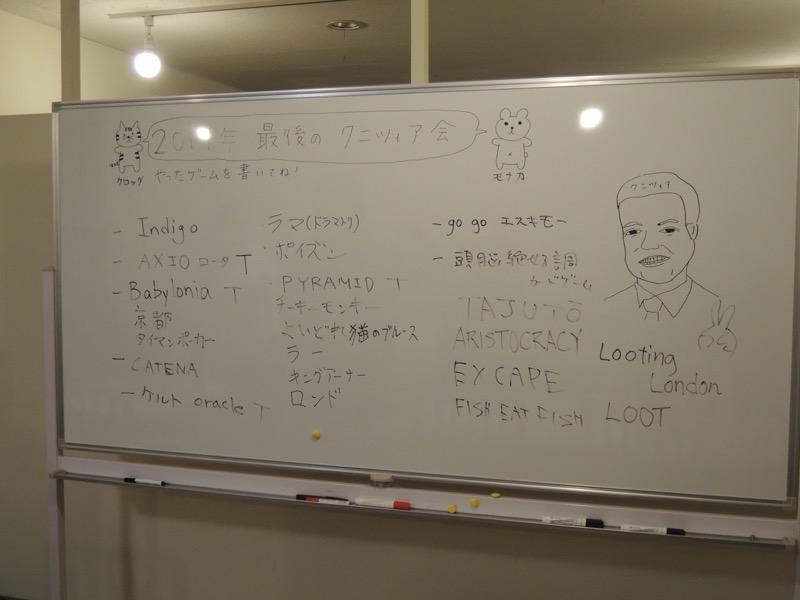 最後の クニツィア会
クロッグ
モナカ
やったゲームを書いてね!
クニツィア
- Indigo
- AXIO ロータ T
- Babylonia T
京都
タイマンポーカー
- CATENA
- ケルト oracle T
ラマ(ドラマあり)
・ポイズン
PYRAMID T
チーキーモンキー
よいどれ猫のブルース
ラー
キングアーサー
ロンド
- go go エスキモー
- 頭脳絶好調
カードゲーム
TAJUTŌ
ARISTOCRACY
EYCAPE
FISH EAT FISH
Looting
London
LOOT